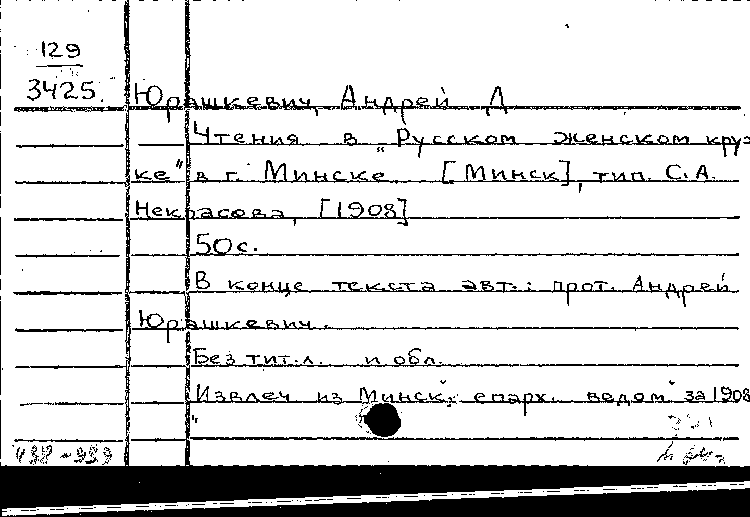 129
3425.
Юрашкевич, Андрей Д
Чтения в "Русском женском круж
ке" в г. Минске. [Минск], тип. С.А.
Некрасова, [1908]
50с.
В конце текста авт.: прот. Андрей
Юрашкевич.
Без тит.л. и обл.
Извлеч из "Минск. епарх. ведом" за 1908